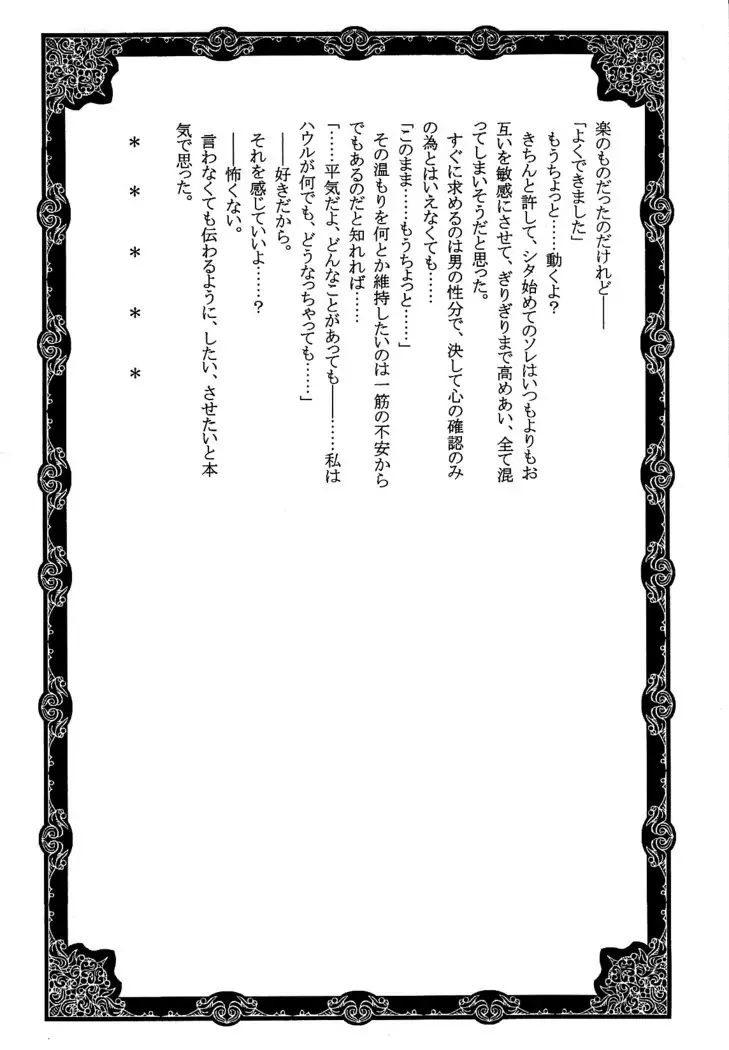 楽のものだったのだけれど――
「よくできました」
もうちょっと……動くよ?
きちんと許して、シタ始めてのソレはいつもよりもお
互いを敏感にさせて、ぎりぎりまで高めあい、全て混
ってしまいそうだと思った。
すぐに求めるのは男の性分で、決して心の確認のみ
の為とはいえなくても……
「このまま……もうちょっと……」
その温もりを何とか維持したいのは一筋の不安から
でもあるのだと知れれば……
「……平気だよ、どんなことがあっても――……私は
ハウルが何でも、どうなっちゃっても……」
――好きだから。
それを感じていいよ……?
――怖くない。
言わなくても伝わるように、したい、させたいと本
気で思った。
＊ ＊ ＊ ＊ ＊